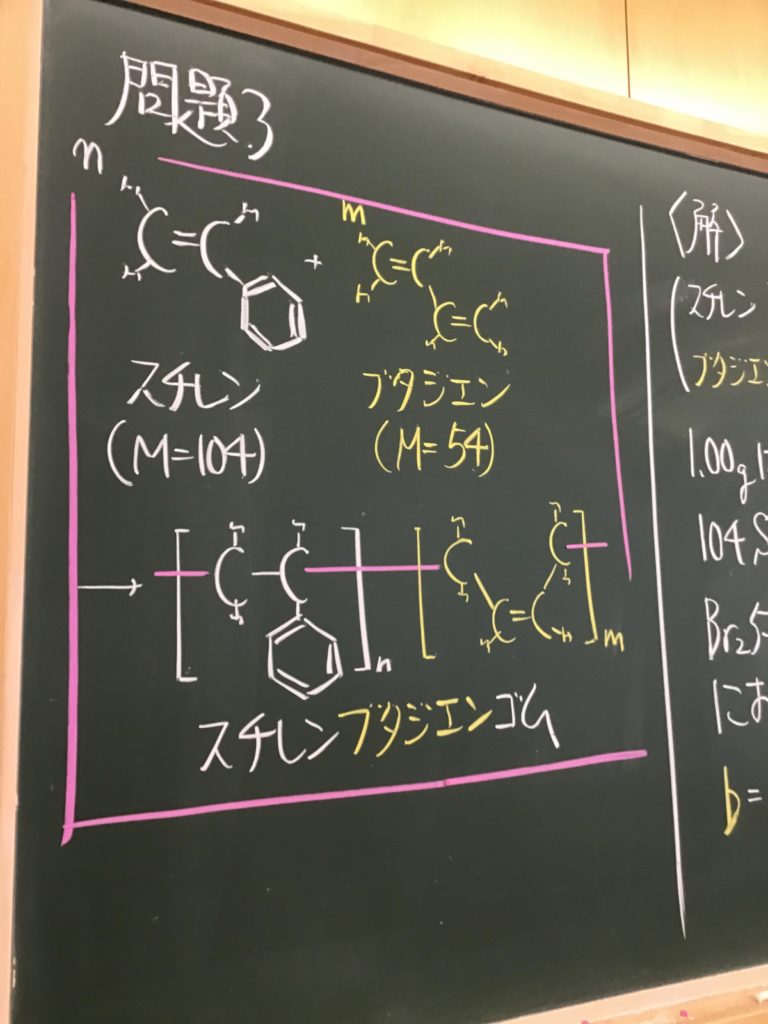 問題3
n
H H
C=C
H
+
m
H H
C=C
H H
C=C
H H
スチレン
(M=104)
ブタジエン
(M=54)
→
[
H H
C-C
H
]n
[
H H
C C
H H
C=C
H H
]m
スチレンブタジエンゴム
〈解〉
スチレン
ブタジエ
1.00g
104
Br2
にお
b=